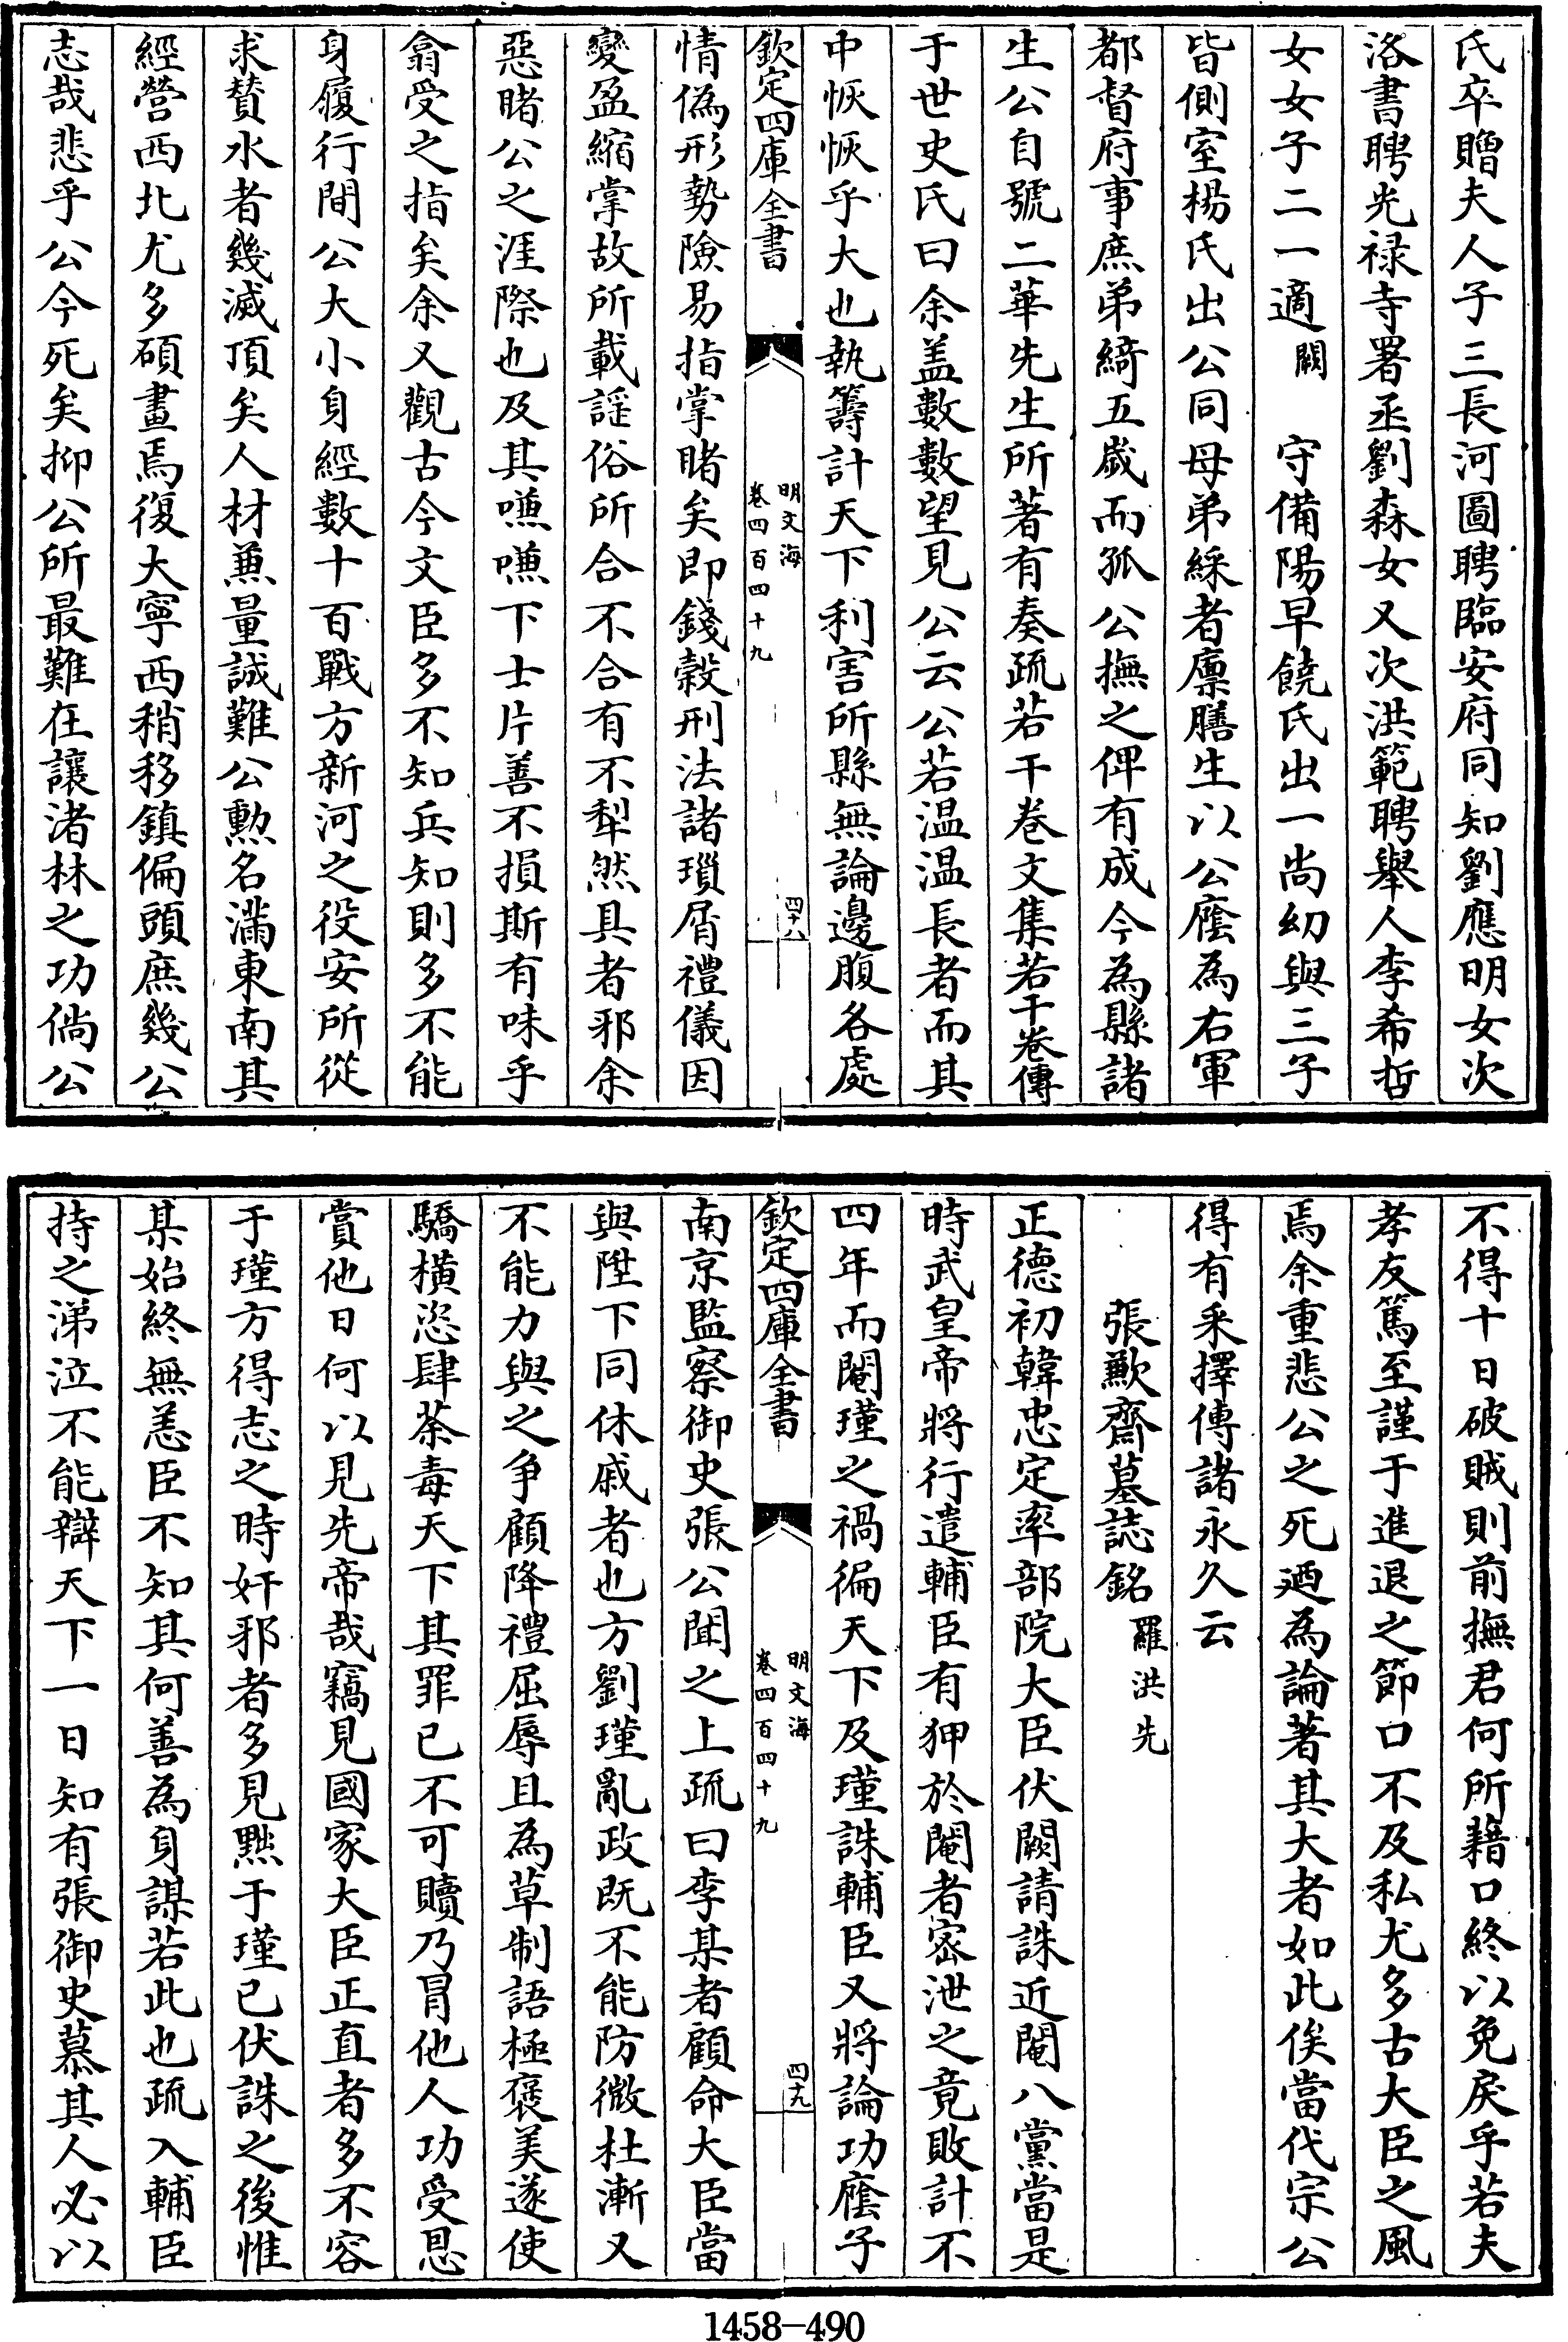 氏卒贈夫人子三長河圖聘臨安府同知劉應明女次
洛書聘光禄寺署丞劉森女又次洪範聘舉人李希哲
女女子二一適闕　守備陽早饒氏出一尚幼與三子
皆側室楊氏出公同母弟綵者廩膳生以公廕為右軍
都督府事庶弟綺五歲而孤公撫之俾有成今為縣諸
生公自號二華先生所著有奏疏若干卷文集若干卷傳
于世史氏曰余盖數數望見公云公若温温長者而其
中恢恢乎大也執籌計天下利害所縣無論邊腹各處
欽定四庫全書
明文海
卷四百四十九
四十八
情偽形勢險易指掌睹矣即錢穀刑法諸瑣屑禮儀因
變盈縮掌故所載謡俗所合不合有不犁然具者邪余
惡睹公之涯際也及其嗛嗛下士片善不損斯有味乎
翕受之指矣余又觀古今文臣多不知兵知則多不能
身履行間公大小身經數十百戰方新河之役安所從
求賛水者幾滅頂矣人材兼量誠難公勲名滿東南其
經營西北尤多碩畫焉復大寧西稍移鎮偏頭庶幾公
志哉悲乎公今死矣抑公所最難在讓渚林之功倘公
不得十日破賊則前撫君何所藉口終以免戾乎若夫
孝友篤至謹于進退之節口不及私尤多古大臣之風
焉余重悲公之死廼為論著其大者如此俟當代宗公
得有采擇傳諸永久云
張歉齋墓誌銘 羅洪先
正德初韓忠定率部院大臣伏闕請誅近閹八黨當是
時武皇帝將行遣輔臣有狎於閹者密泄之竟敗計不
四年而閹瑾之禍徧天下及瑾誅輔臣又將論功廕子
欽定四庫全書
明文海
卷四百四十九
四十九
南京監察御史張公聞之上疏曰李某者顧命大臣當
與陞下同休戚者也方劉瑾亂政既不能防微杜漸又
不能力與之争顧降禮屈辱且為草制語極褒美遂使
驕横恣肆荼毒天下其罪已不可贖乃冐他人功受恩
賞他日何以見先帝哉竊見國家大臣正直者多不容
于瑾方得志之時奸邪者多見黜于瑾已伏誅之後惟
某始終無恙臣不知其何善為身謀若此也疏入輔臣
持之涕泣不能辯天下一日知有張御史慕其人必以
1458-490